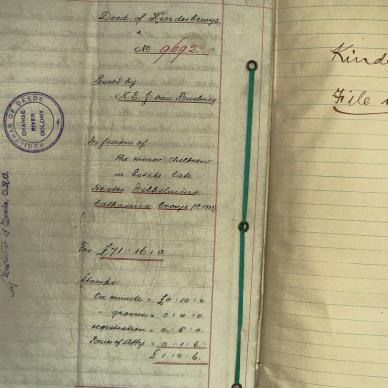 Deed of Kinderbewys.
No 9692.
Passed by
N. E. J. van Rensburg
In favour of
the minor children
in Estate late
Hester Wilhelmina
Catharina Cronje
For £71:16:0.
Stamps:
On minute = £0:10:0.
" grosse = 0:4:0.
registration = 0:5:0.
Power of Atty = 0:1:6.
£1:0:6.
REGISTRAR OF DEEDS.
ORANGE
RIVER
COLONY.
Registrar of Deeds, O.R.C.
Kinde
File